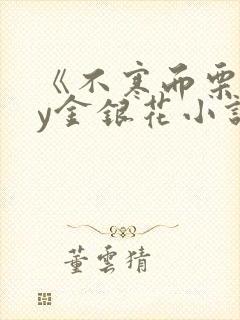 《不寒而栗
y金银花小说
董雲猜